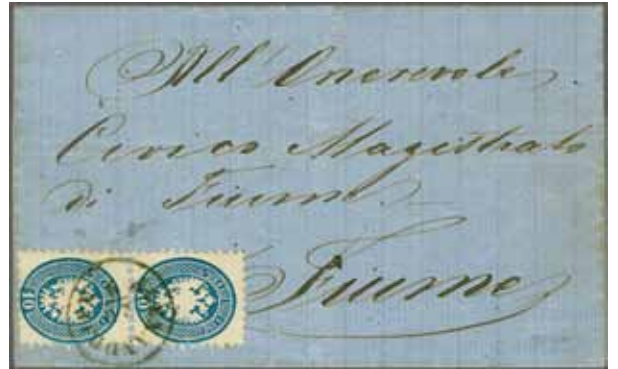 All' Onorevole
Civico Magistrato
di Fiume
Fiume
10
10